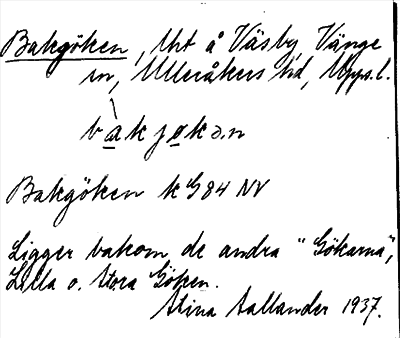 Bakgöken, Urt å Väsby, Vänge
sn, Ulleråkers hd, Upps.l.
bàkjøkə.n
Bakgöken kG84 NV
Ligger bakom de andra "Gökarna",
Lilla o. Stora Göken.
Stina Sallander 1937.